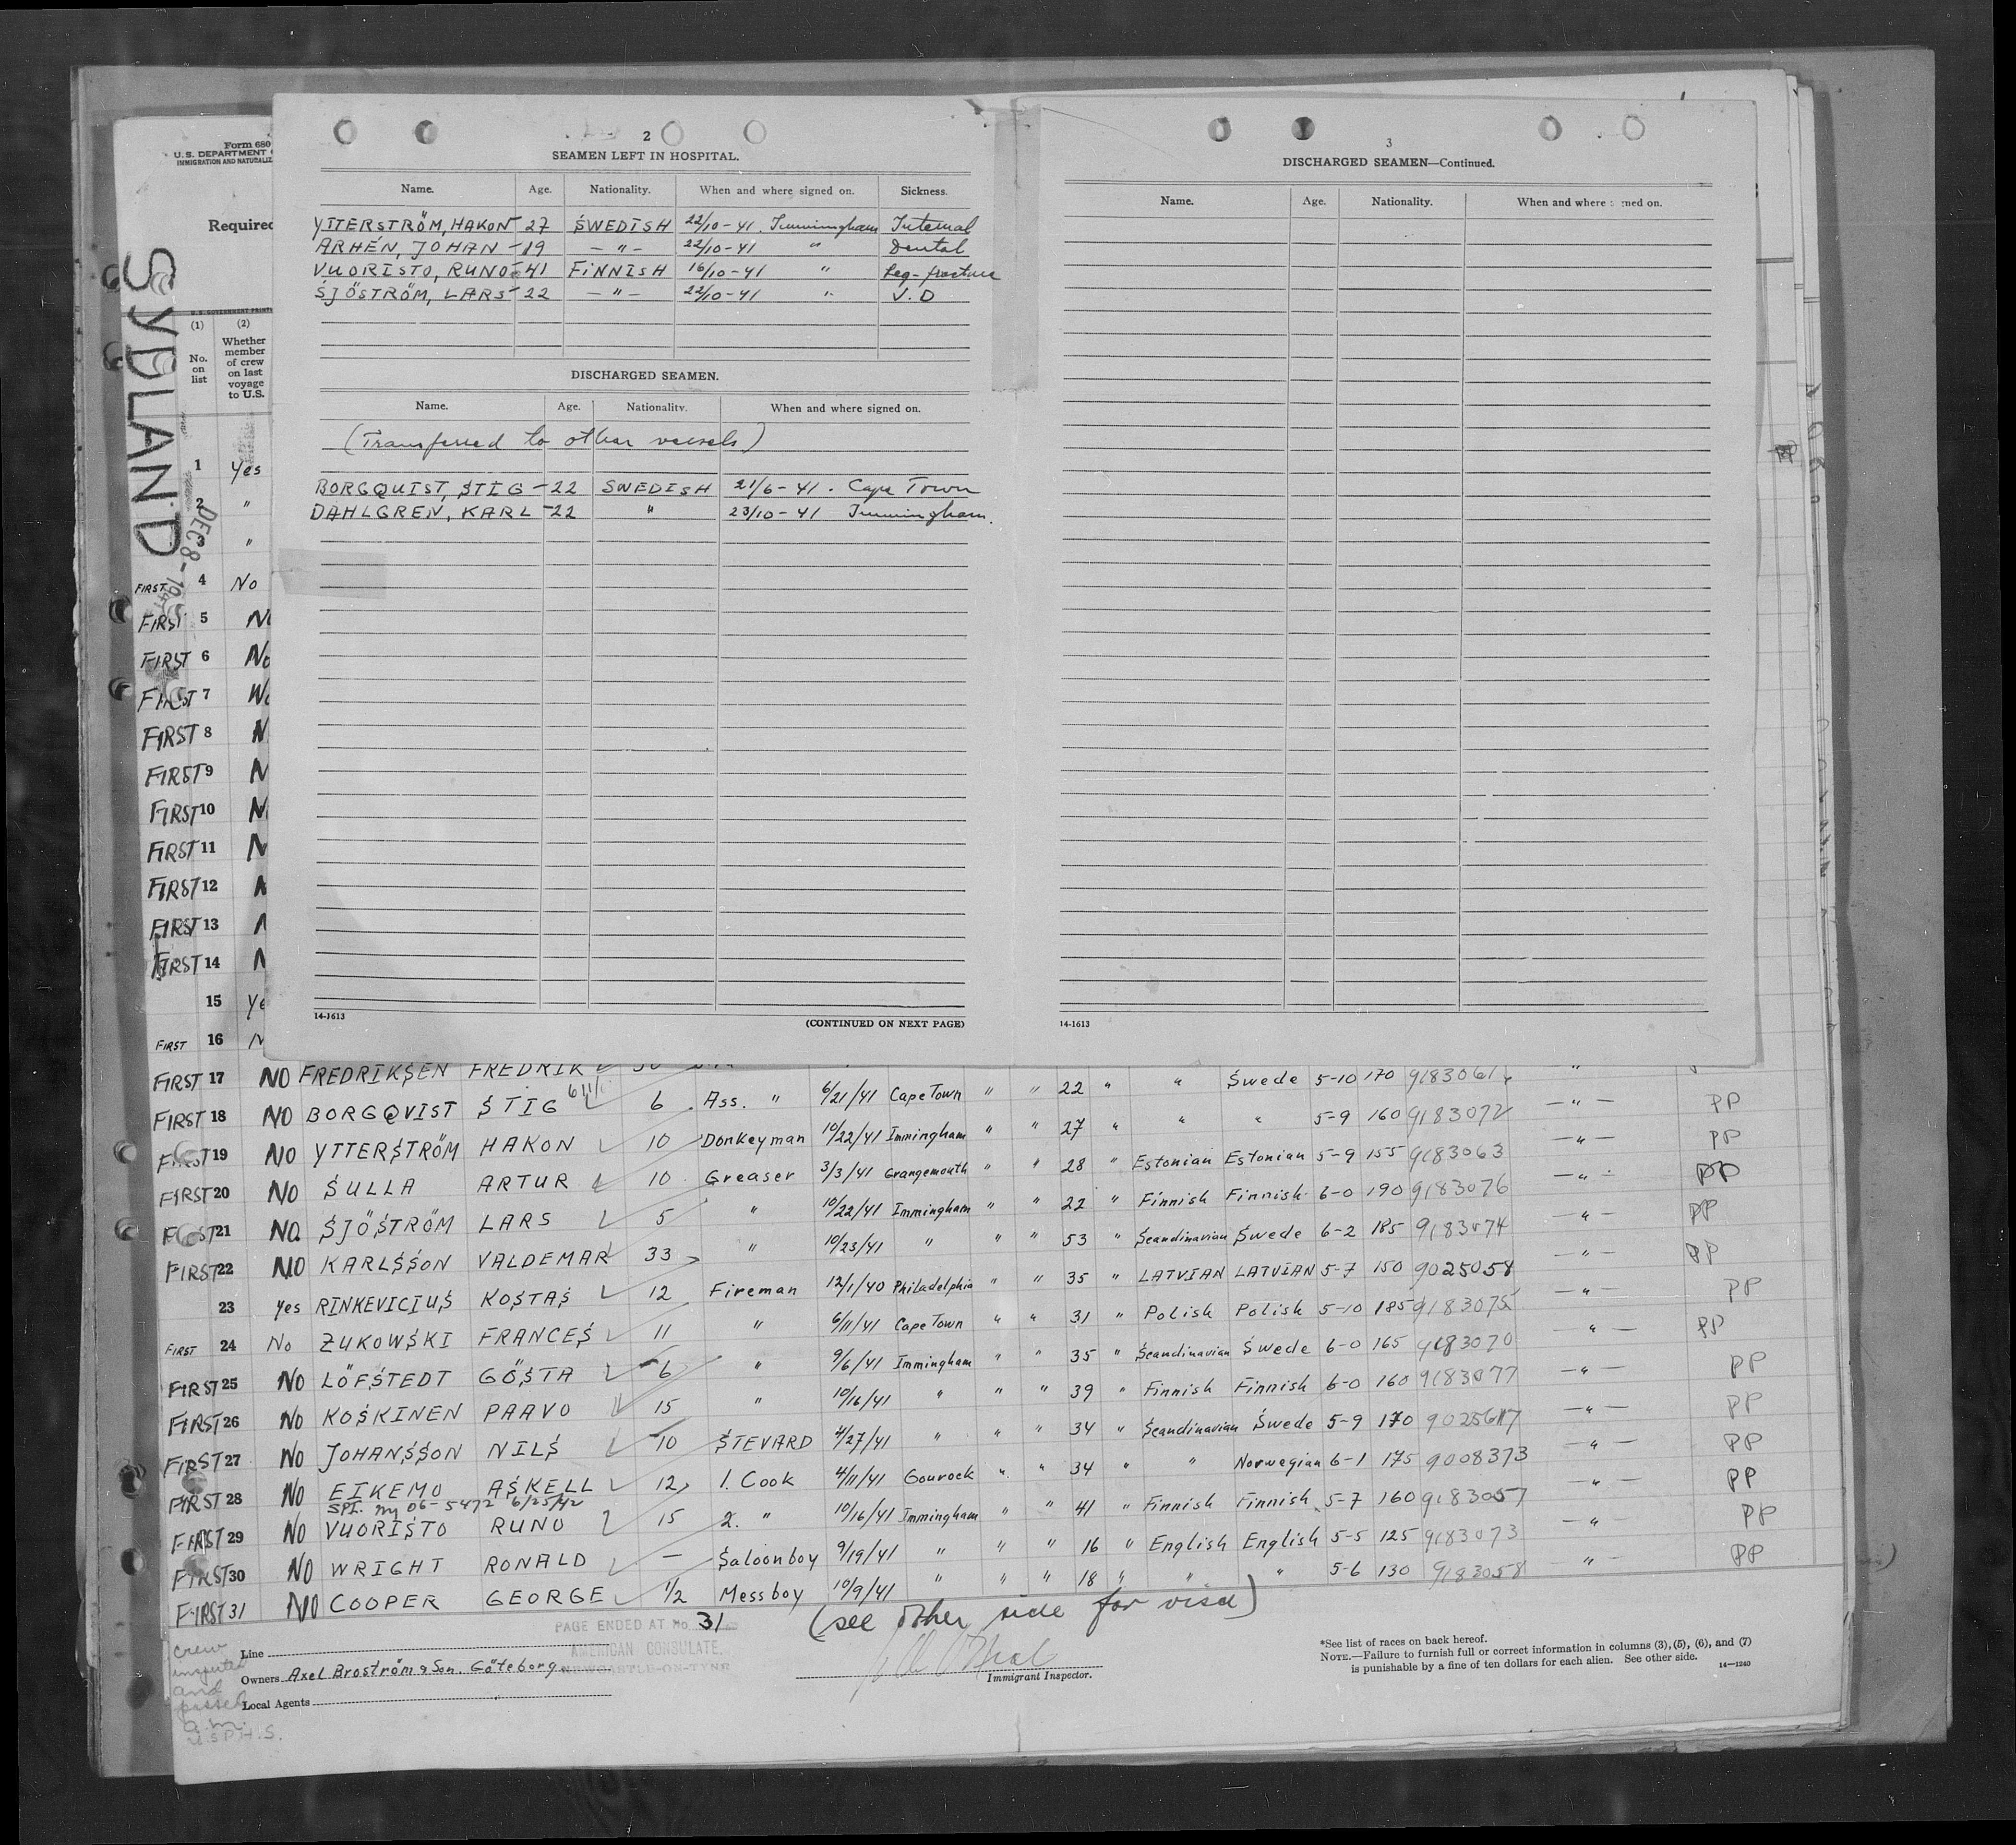 Form 680
U.S. DEPARTMENT
IMMIGRATION AND NATURALIZ
Required
SYDLAND
DEC 8 - 1941
(1) (2)
No. on list
Whether member of crew on last voyage to U.S.
1 Yes
2 "
3 "
FIRST 4 No
FIRST 5
FIRST 6 No
FIRST 7
FIRST 8
FIRST 9
FIRST 10
FIRST 11
FIRST 12
FIRST 13
FIRST 14
15 Ye
FIRST 16
2
SEAMEN LEFT IN HOSPITAL.
Name. Age. Nationality. When and where signed on. Sickness.
YTTERSTRÖM, HAKON - 27 SWEDISH 22/10-41. Immingham Internal
ARHÉN, JOHAN - 19 - " - 22/10-41 " Dental
VUORISTO, RUNO - 41 FINNISH 16/10-41 " Leg-fracture
SJÖSTRÖM, LARS - 22 - " - 22/10-41 " V.D
DISCHARGED SEAMEN.
Name. Age. Nationality. When and where signed on.
(Transferred to other vessels)
BORGQUIST, STIG - 22 SWEDISH 21/6-41. Cape Town
DAHLGREN, KARL - 22 " 23/10-41 Immingham.
14-1613 (CONTINUED ON NEXT PAGE)
3
DISCHARGED SEAMEN—Continued.
Name. Age. Nationality. When and where signed on.
14-1613
FIRST 17 NO FREDRIKSEN FREDRIK
FIRST 18 NO BORGQVIST STIG 6 Ass. " 6/21/41 Cape Town " " 22 " " Swede 5-10 170 9183061 - " -
FIRST 19 NO YTTERSTRÖM HAKON 10 Donkeyman 10/22/41 Immingham " " 27 " " " 5-9 160 9183072 - " - PP
FIRST 20 NO SULLA ARTUR 10 Greaser 3/3/41 Grangemouth " " 28 " Estonian Estonian 5-9 155 9183063 - " - PP
FIRST 21 NO SJÖSTRÖM LARS 5 " 10/22/41 Immingham " " 22 " Finnish Finnish 6-0 190 9183076 - " - PP
FIRST 22 NO KARLSSON VALDEMAR 33 " 10/23/41 " " " 53 " Scandinavian Swede 6-2 185 9183074 - " - PP
23 Yes RINKEVICIUS KOSTAS 12 Fireman 12/1/40 Philadelphia " " 35 " LATVIAN LATVIAN 5-7 150 9025058 - " - PP
FIRST 24 No ZUKOWSKI FRANCES 11 " 6/11/41 Cape Town " " 31 " Polish Polish 5-10 185 9183075 - " - PP
FIRST 25 NO LÖFSTEDT GÖSTA 6 " 9/6/41 Immingham " " 35 " Scandinavian Swede 6-0 165 9183070 - " - PP
FIRST 26 No KOSKINEN PAAVO 15 " 10/16/41 " " " 39 " Finnish Finnish 6-0 160 9183077 - " - PP
FIRST 27 No JOHANSSON NILS 10 STEVARD 4/27/41 " " " 34 " Scandinavian Swede 5-9 170 - " - PP
FIRST 28 No EIKEMO ASKELL 12 1. Cook 4/11/41 Gourock " " 34 " " Norwegian 6-1 175 9008373 - " - PP
SPI. 06-5472 6/25/42
FIRST 29 No VUORISTO RUNO 15 2. " 10/16/41 Immingham " " 41 " Finnish Finnish 5-7 160 9183057 - " - PP
FIRST 30 NO WRIGHT RONALD — Saloonboy 9/19/41 " " " 16 " English English 5-5 125 9183073 " PP
FIRST 31 NO COOPER GEORGE 1/2 Messboy 10/9/41 " " " 18 " " " 5-6 130 9183058 " - PP
PAGE ENDED AT No. 31
AMERICAN CONSULATE,
NEWCASTLE-ON-TYNE
(see other side for visa)
Line
Owners Axel Broström & Son. Göteborg
Local Agents
Immigrant Inspector.
Crew
inspected
and
passed
U.S.P.H.S.
*See list of races on back hereof.
NOTE.—Failure to furnish full or correct information in columns (3), (5), (6), and (7)
is punishable by a fine of ten dollars for each alien. See other side. 14—1240